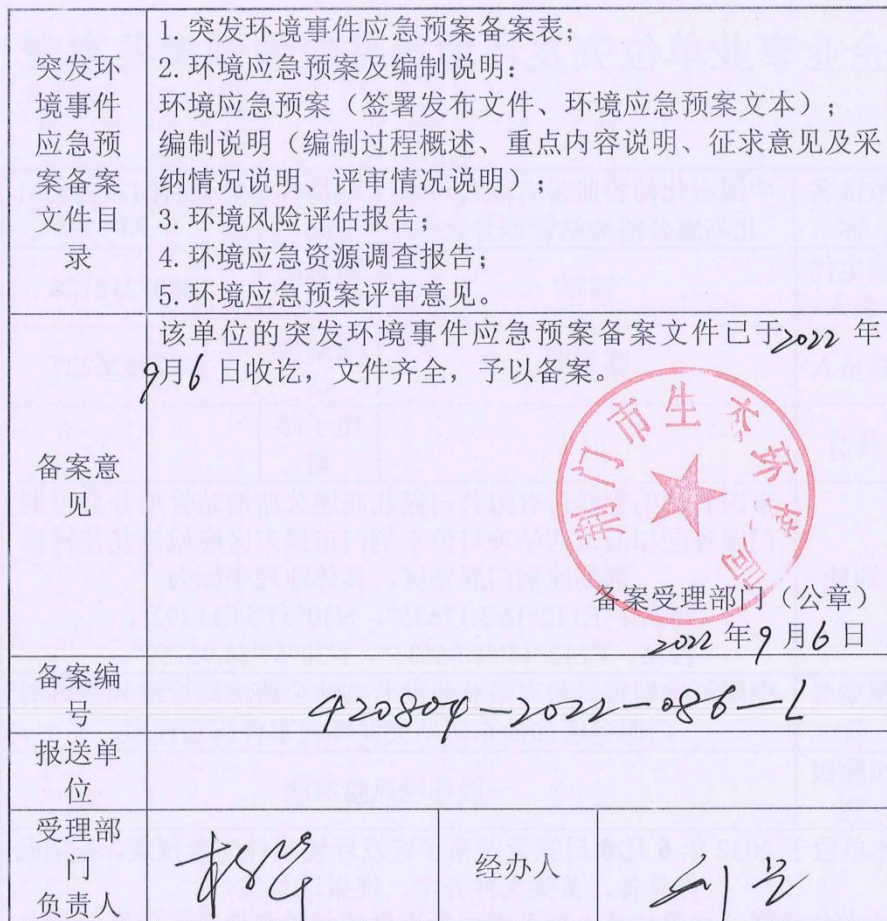 突发环
境事件
应急预
案备案
文件目
录
1.突发环境事件应急预案备案表;
2.环境应急预案及编制说明:
环境应急预案(签署发布文件、环境应急预案文本);
编制说明(编制过程概述、重点内容说明、征求意见及采
纳情况说明、评审情况说明);
3.环境风险评估报告;
4.环境应急资源调查报告;
5.环境应急预案评审意见。
备案意
见
该单位的突发环境事件应急预案备案文件已于2022 年
9月6 日收讫,文件齐全,予以备案。
荆门市生态环境局
备案受理部门(公章)
2022 年 9 月 6 日
备案编
号
420804-2022-086-L
报送单
位
受理部
门
负责人
经办人